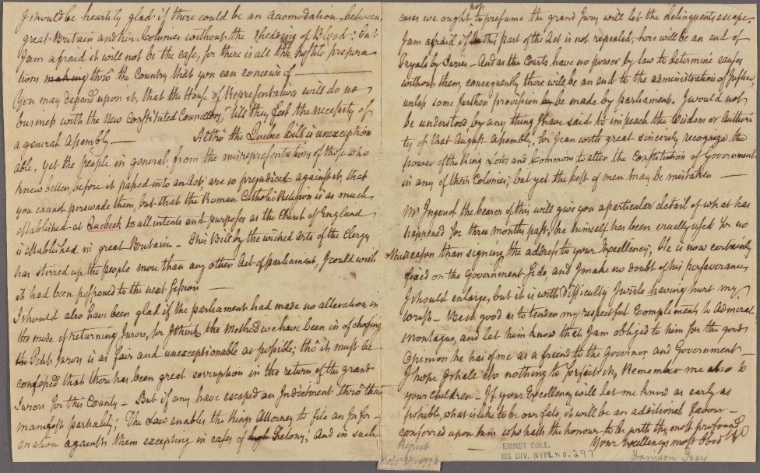 I should be heartily glad if there could be an accomodation between
great Britain and her Colonies without the sheding of Blood: but
I am afraid it will not be the case, for there is all the hostile prepara-
tions making thro' the Country that you can conceive of—
You may depend upon it, that the House of Representatives will do no
business with the New Constituted Councellors, till they feel the necessity of
a general Assembly— Altho' the Quebec bill is unaception
able, yet the people in general, from the misrepresentations of those who
knew better, before it passed into an Act, are so prejudiced against it, that
you cannot perswade them, but that the Roman Catholic Religion is as much
established at Quebeck to all intents and purposes as the Church of England
is established in great Britain— This Bill by the wicked arts of the Clergy
has stirred up the people more than any other Act of parliament, I could wish
it had been postponed to the next Session—
I should also have been glad if the parliament had made no alteration in
the mode of returning Jurors, for I think the Method we have been in of chusing
the Petit Jurors is as fair and unacceptionable as possible; tho' it must be
confessed that there has been great corruption in the return of the grand
Jurors for this County— But if any have escaped an Indictment thro' their
manifest partiality; The Law enables the Kings Attorney to file an Infor-
mation against them excepting in cases of Felony; And in such
cases we ought not to presume the grand Jury will let the delinquents escape,
I am afraid if this part of the Act is not repealed, here will be an end of
Tryals by Juries— And as the Courts have no power by law to determine cases
without them, consequently there will be an end to the administration of Justice,
unless some further provision be made by parliament. I would not
be understood by any thing I have said to impeach the Wisdom or Authori
ty of that August Assembly, for I can with great sincerity recognize the
power of the King Lords and Commons to alter the Constitution of Government
in any of their Colonies; but yet the best of men may be mistaken—
Mr Ingersol the bearer of this will give you a particular detail of what has
happened for three months past, he himself has been cruelly used for no
other reason than signing the address to your Excellency, He is now certainly
fixed on the Government side and I make no doubt of his perseverance
I should enlarge, but it is with difficulty I write having hurt my
wrist— Be so good as to tender my respectful Complements to Admiral
Montague, and let him know that I am obliged to him for the good
Opinion he has of me as a friend to the Governor and Government—
I hope I shall do nothing to forfeit it, Remember me also to
your children— If your Excellency will let me know as early as
possible, what is like to be our fate, it will be an additional favour
conferred upon him who hath the honour to be with the most profound
Your Excellencys most obed
EMMET COLL.
MS DIV. NYPL no. 297
Harrison Gray